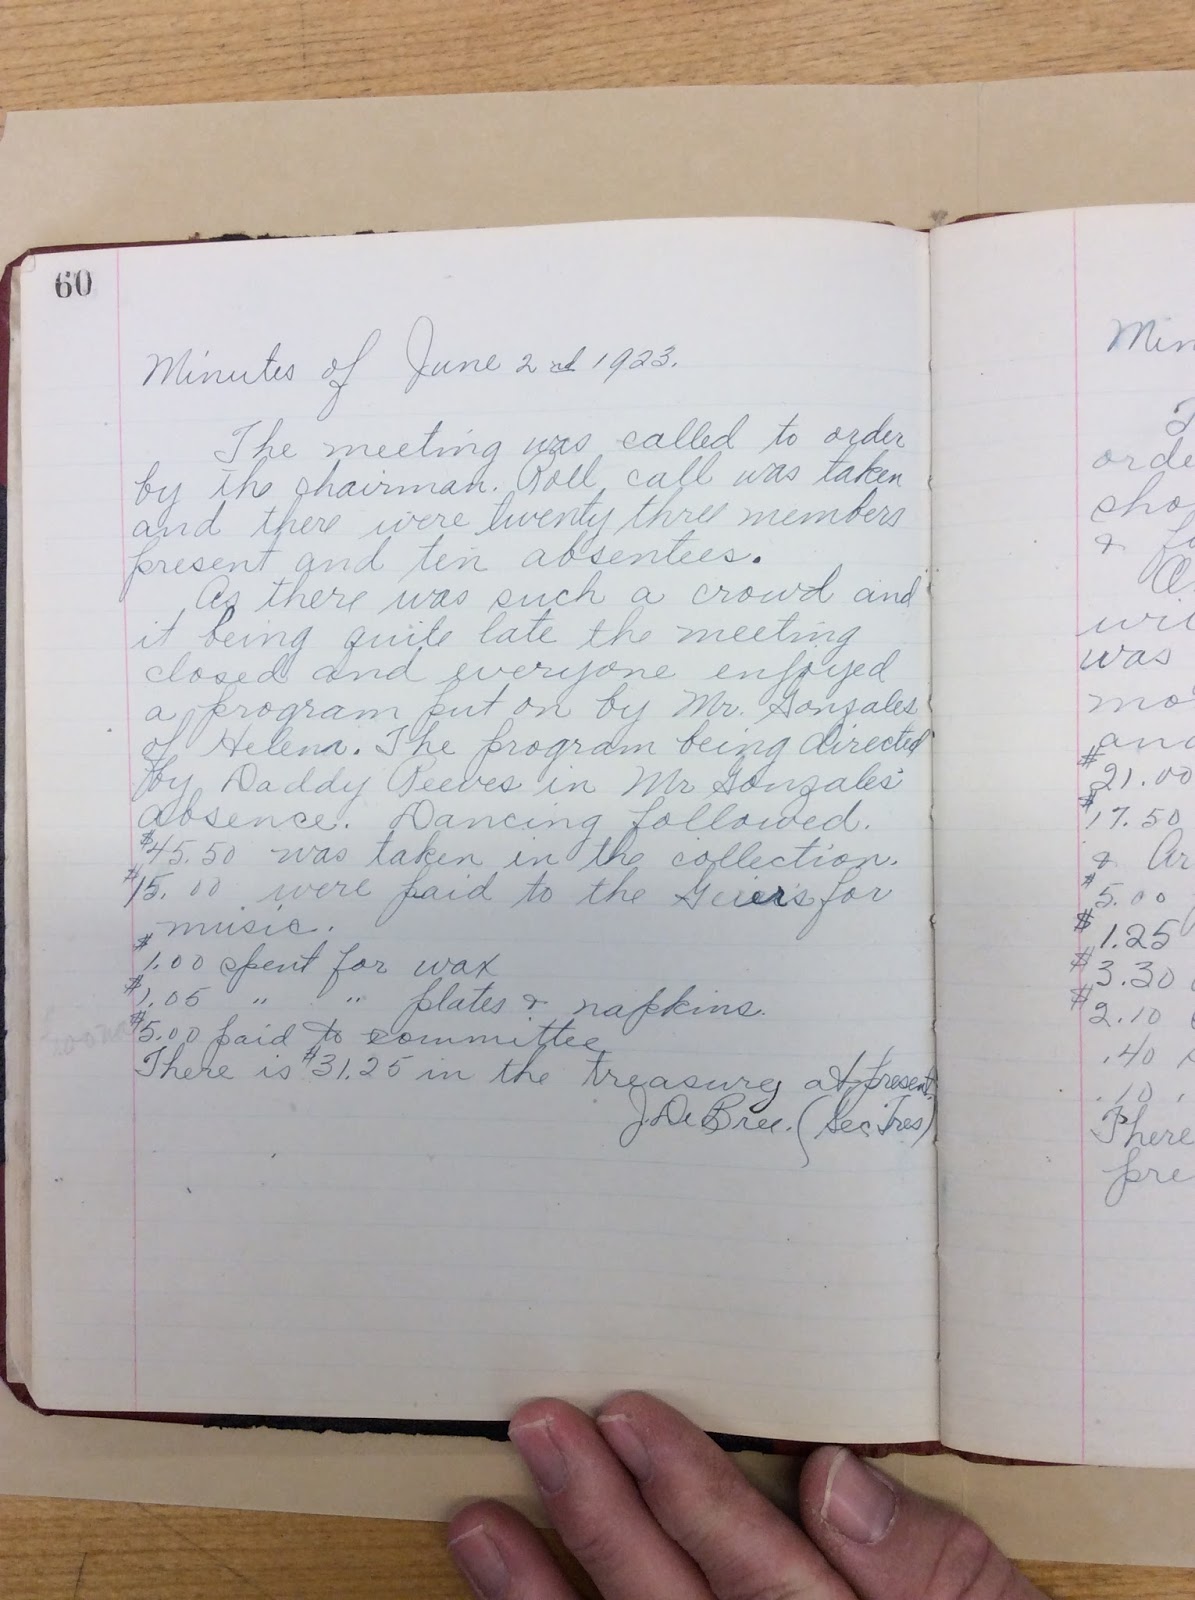 60
Minutes of June 2nd 1923.
The meeting was called to order
by the chairman. Roll call was taken
and there were twenty three members
present and ten absentees.
As there was such a crowd and
it being quite late the meeting
closed and everyone enjoyed
a program put on by Mr. Gonzales
of Helena. The program being directed
by Daddy Reeves in Mr Gonzales'
absence. Dancing followed.
$45.50 was taken in the collection.
$15.00 were paid to the Geiers for
music.
$1.00 spent for wax
$1.05 " " plates & napkins.
$5.00 paid to committee
There is $31.25 in the treasury at present.
J. De Bree. (Sec Tres)
Min
T
orde
cho
&
wi
was
mo
and
$21.00
$17.50
& Ar
$5.00
$1.25
$3.30
$2.10
.40
.10
There
pre